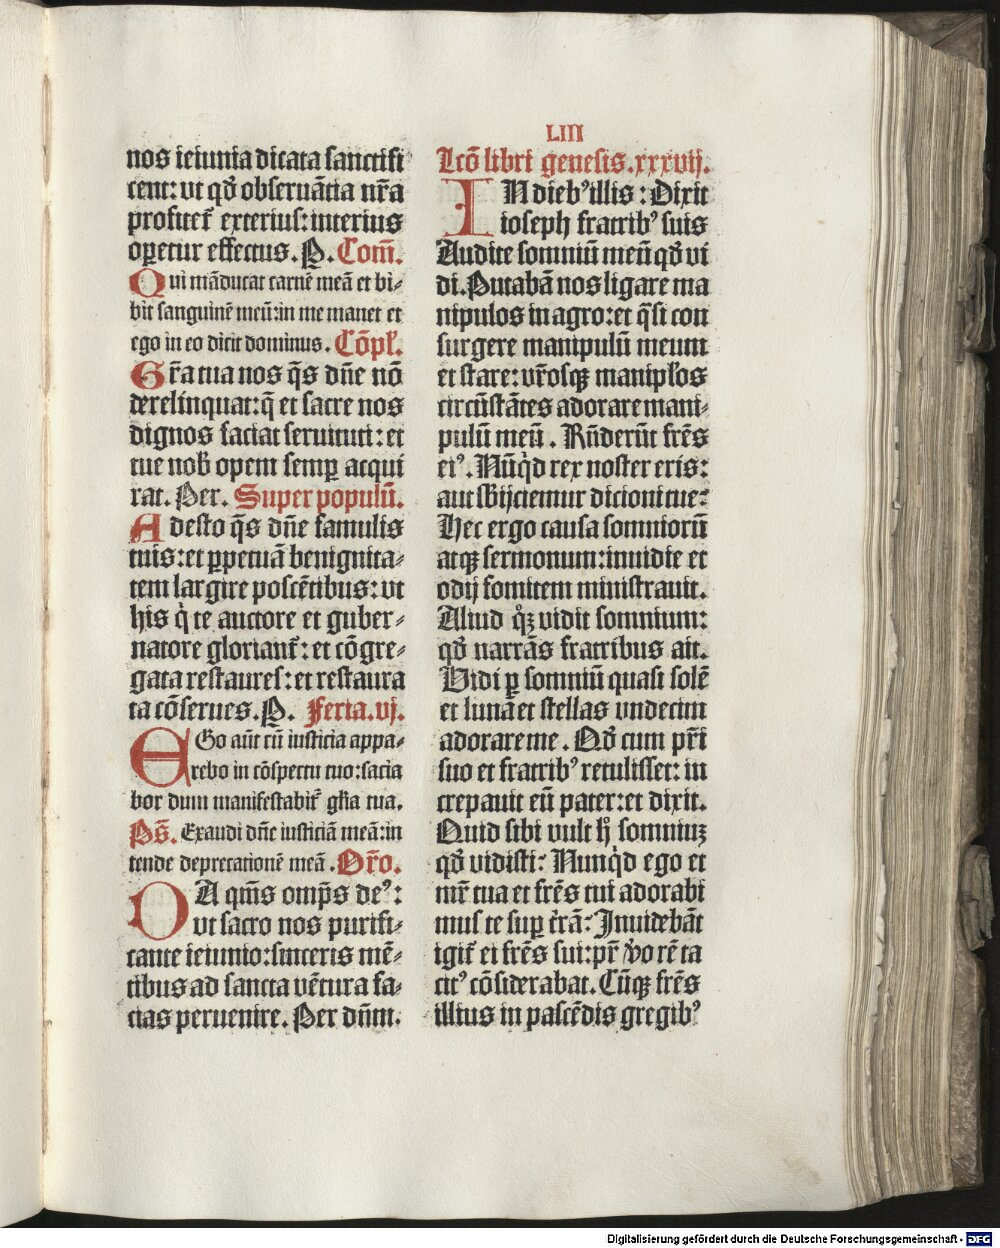 nos ieiunia dicata sanctifi
cent: vt qd̄ obseruātia nr̄a
profitet᷑ exterius: interius
oꝑetur effectus. P. Com̄.
Qui māducat carnē meā et bi-
bit sanguinē meū: in me manet et
ego in eo dicit dominus. Cōpl̄.
Gr̄a tua nos q̄s dn̄e nō
derelinquat: q̄ et sacre nos
dignos faciat seruituti: et
tue nob̄ opem semꝑ acqui
rat. Per. Super populū.
Adesto q̄s dn̄e famulis
tuis: et ꝑpetuā benignita-
tem largire poscētibus: vt
his q̇ te auctore et guber-
natore gloriant᷑: et cōgre-
gata restaures: et restaura
ta cōserues. P. Feria. vj.
EGo aūt cū iusticia appa-
rebo in cōspectu tuo: sacia
bor dum manifestabit᷑ gl̄ia tua.
Ps̄. Exaudi dn̄e iusticiā meā: in
tende deprecationē meā. Or̄o.
DA qm̄s omp̄s deꝰ:
vt sacro nos purifi-
cante ieiunio: sinceris mē-
tibus ad sancta vētura fa-
cias peruenire. Per dn̄m.
LIII
Lcō libri genesis. xxxvij.
IN diebꝰ illis: Dixit
ioseph fratribꝰ suis
Audite somniū meū qd̄ vi
di. Putabā nos ligare ma
nipulos in agro: et q̄si con
surgere manipulū meum
et stare: vr̄osqꝫ manipl̓os
circūstātes adorare mani-
pulū meū. Rn̄derūt fr̄es
eiꝰ. Nūqd̓ rex noster eris:
aut sb̄ijciemur dicioni tue?
Hec ergo causa somniorū
atqꝫ sermonum: inuidie et
odij fomitem ministrauit.
Aliud qͦꝫ vidit somnium:
qd̄ narrās fratribus ait.
Vidi ꝑ somniū quasi solē
et lunā et stellas vndecim
adorare me. Qd̄ cum pr̄i
suo et fratribꝰ retulisset: in
crepauit eū pater: et dixit.
Quid sibi vult hͦ somniuꝫ
qd̄ vidisti? Nunqd̓ ego et
mr̄ tua et fr̄es tui adorabi
mus te suꝑ t̓rā? Inuidebāt
igit᷑ ei fr̄es sui: pr̄ v̓o rē ta
citꝰ cōsiderabat. Cūqꝫ fr̄es
illius in pascēdis gregibꝰ
Digitalisierung gefördert durch die Deutsche Forschungsgemeinschaft - DFG